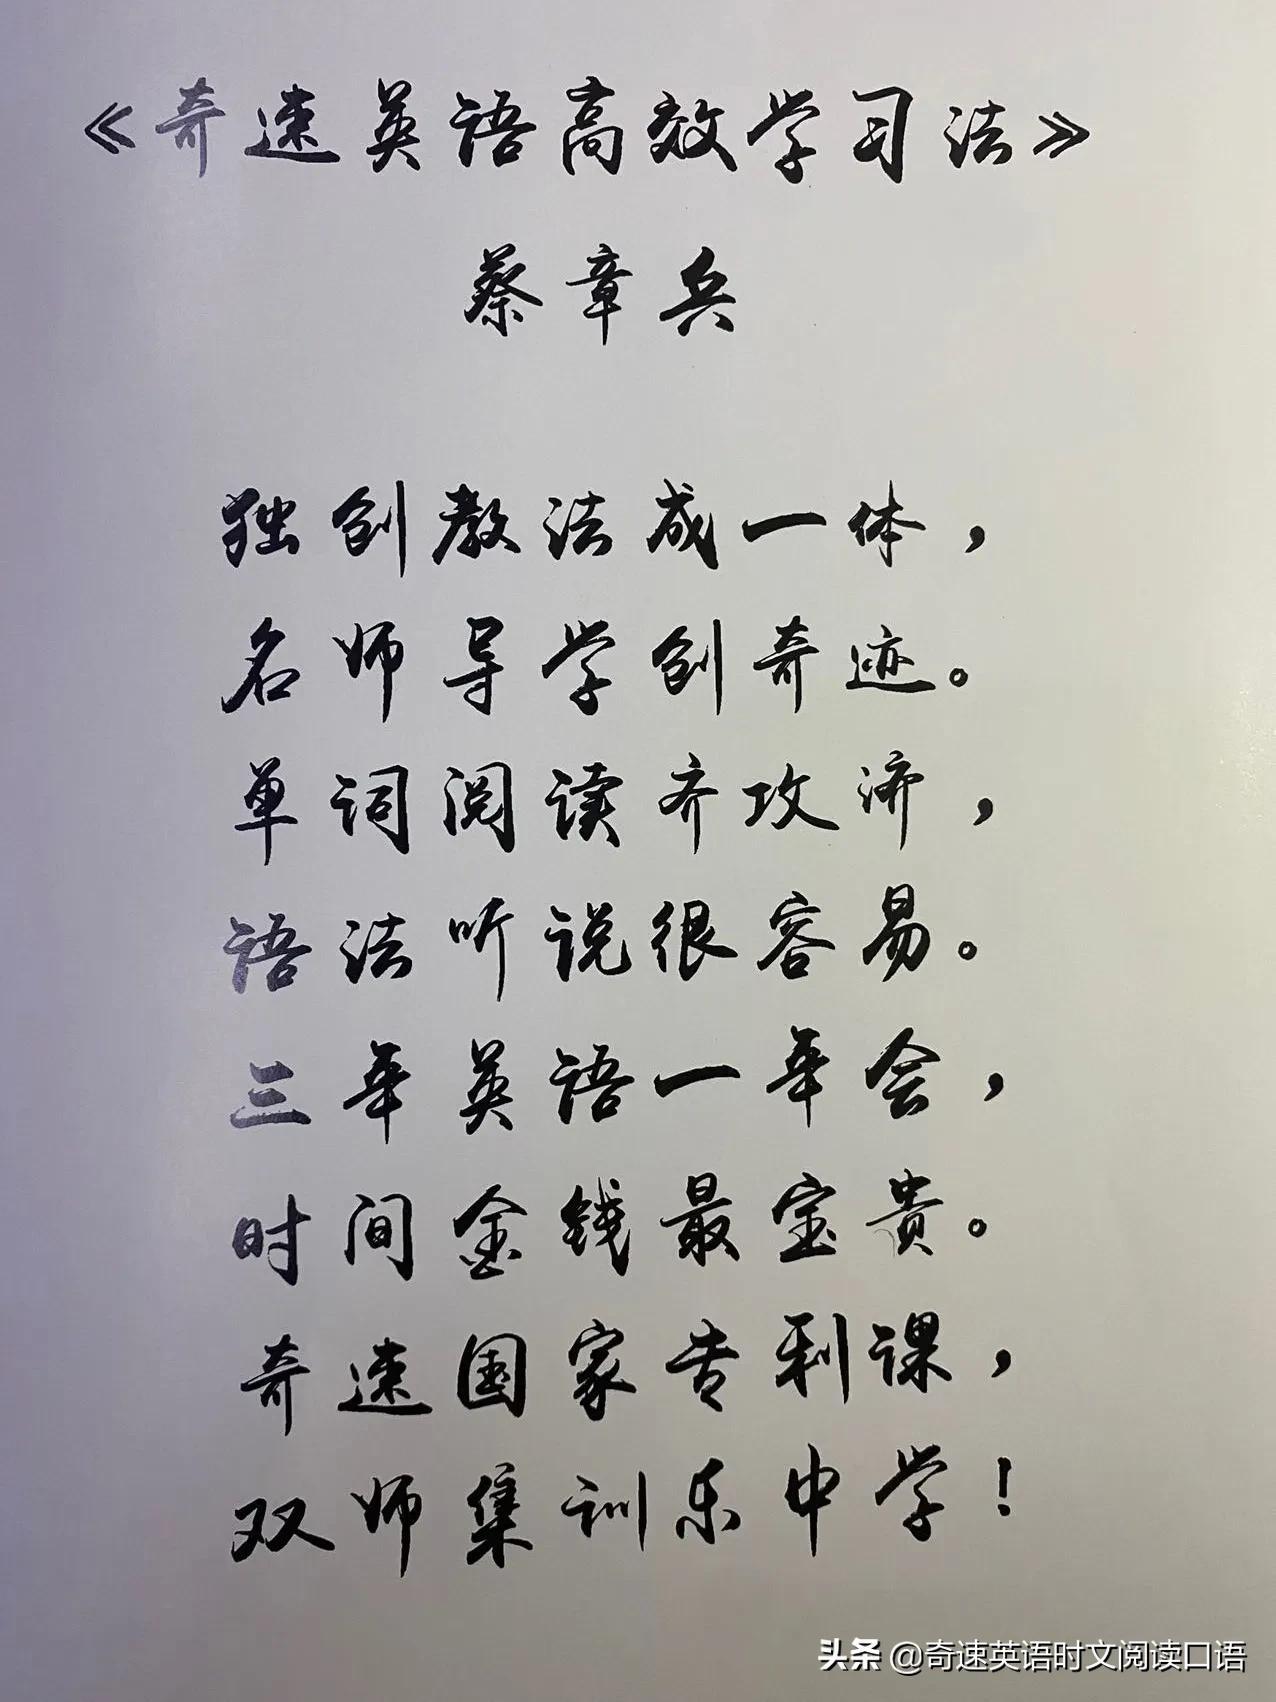 《奇速英语高效学习法》
蔡章兵
独创教法成一体，
名师导学创奇迹。
单词阅读齐攻济，
语法听说很容易。
三年英语一年会，
时间金钱最宝贵。
奇速国家告利课，
双师集训乐中学！
头条 @奇速英语时文阅读口语